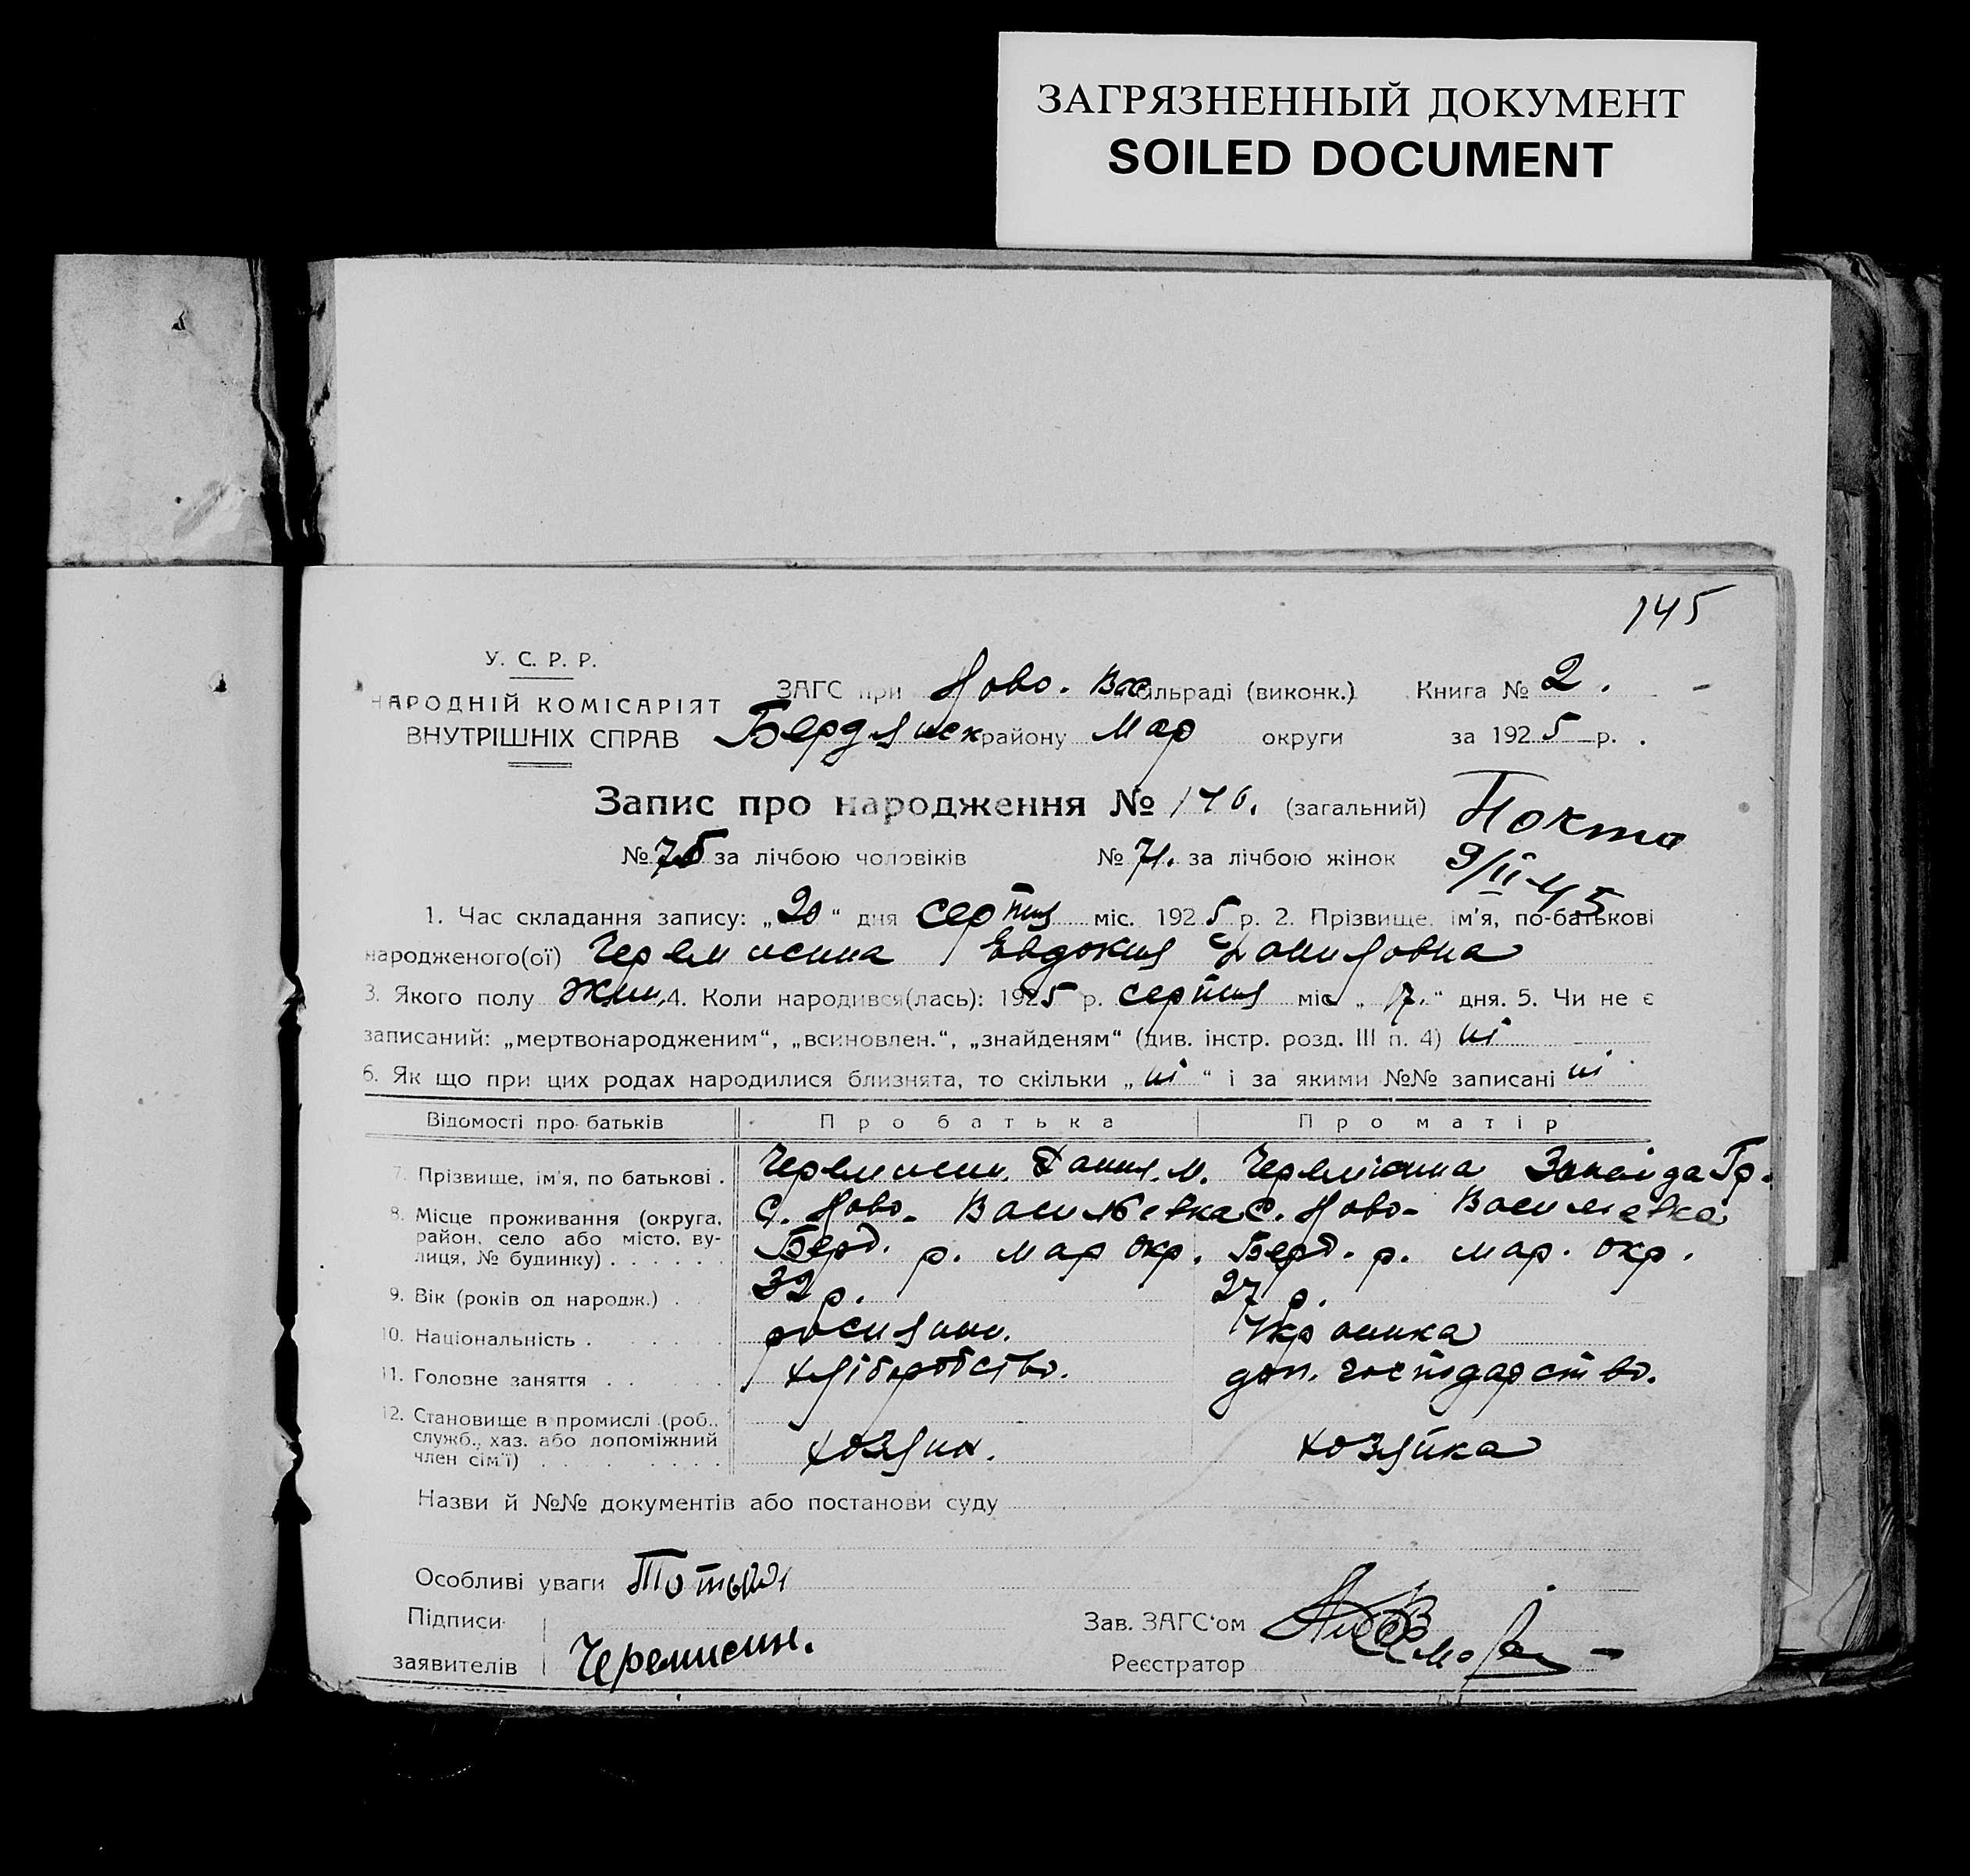 ЗАГРЯЗНЕННЫЙ ДОКУМЕНТ
SOILED DOCUMENT
145
У. С. Р. Р.
НАРОДНІЙ КОМІСАРІЯТ
ВНУТРІШНІХ СПРАВ
ЗАГС при Ново-Вас сільраді (виконк.) Книга № 2.
Бердянск району Мар округи за 1925 р.
Запис про народження № 146. (загальний)
№ 75 за лічбою чоловіків № 71. за лічбою жінок
9/II-45
1. Час складання запису: „20" дня серпня міс. 1925 р. 2. Прізвище, ім'я, по-батькові
народженого(ої) Черемисина Евдокия Даниловна
3. Якого полу жін. 4. Коли народився(лась): 1925 р. серпня міс „17." дня. 5. Чи не є
записаний: „мертвонародженим", „всиновлен.", „знайденям" (див. інстр. розд. III п. 4) ні
6. Як що при цих родах народилися близнята, то скільки „ні" і за якими №№ записані ні
Відомості про батьків Про батька Про матір
7. Прізвище, ім'я, по батькові . Черемисин. Данил. М. Черемісина Зинаіда Гр.
8. Місце проживання (округа, район, село або місто, ву-лиця, № будинку) . . . . . . С. Ново-Василевка С. Ново-Василевка
Берд. р. Мар окр. Берд. р. мар. окр.
9. Вік (років од народж.) . 32 р. 27 р.
10. Національність . росиянин. Украинка
11. Головне заняття . . хліборобство. дом. господарство.
12. Становище в промислі (роб., служб., хаз. або допоміжний член сім'ї) хозяин. хозяйка
Назви й №№ документів або постанови суду
Особливі уваги
Підписи заявителів Черемисин.
Зав. ЗАГС'ом
Реєстратор